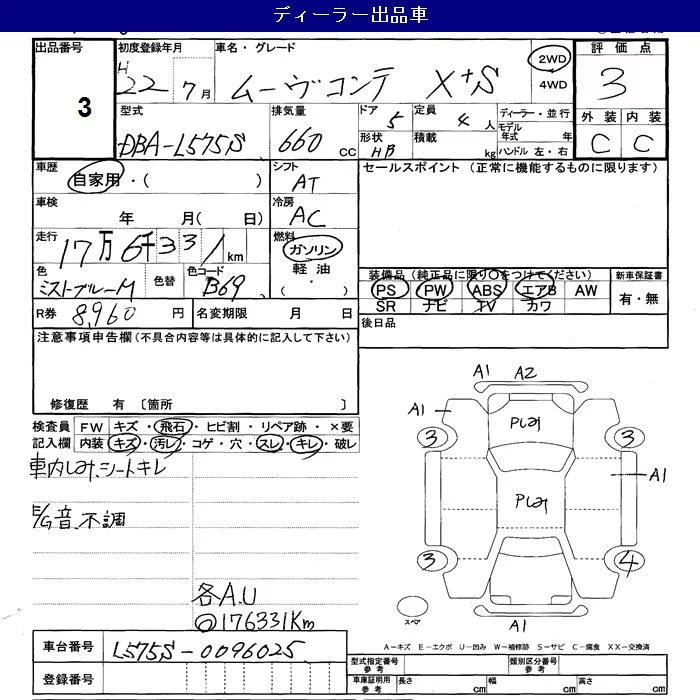 ディーラー出品車
出品番号 初度登録年月 車名・グレード 2WD 評価点
3 H22 7月 ムーヴコンテ X+S 4WD 3
型式 排気量 ドア 定員 ディーラー・並行 外装 内装
DBA-L575S 660 CC 5 4人 モデル年式 年 C C
形状 HB 積載 kg ハンドル 左・右
車歴 シフト セールスポイント(正常に機能するものに限ります)
自家用・( ) AT
車検 冷房
年 月( 日) AC
走行 燃料
17万6千331km ガソリン
色 色替 色コード 軽油
ミストブルーM B69 ( ・ )
装備品(純正品に限り○をつけてください) 新車保証書
PS PW ABS エアB AW 有・無
SR ナビ TV カワ
R券 8,960円 名変期限 月 日 後日品
注意事項申告欄(不具合内容等は具体的に記入して下さい)
修復歴 有 〔箇所 〕
検査員 FW キズ・飛石・ヒビ割・リペア跡・×要
記入欄 内装 キズ・汚レ・コゲ・穴・スレ・キレ・破レ
車内しみ、シートキレ
E/G音、不調
各A.U
◎176331Km
A1 A2
A1 Pしみ
3 3
A1
Pしみ
3 4
スペア
A1
A-キズ E-エクボ U-凹み W-補修跡 S-サビ C-腐食 XX-交換済
車台番号 L575S-0096025
型式指定番号 参考 類別区分番号 参考
登録番号
車庫証明用 参考 長さ cm 幅 cm 高さ cm